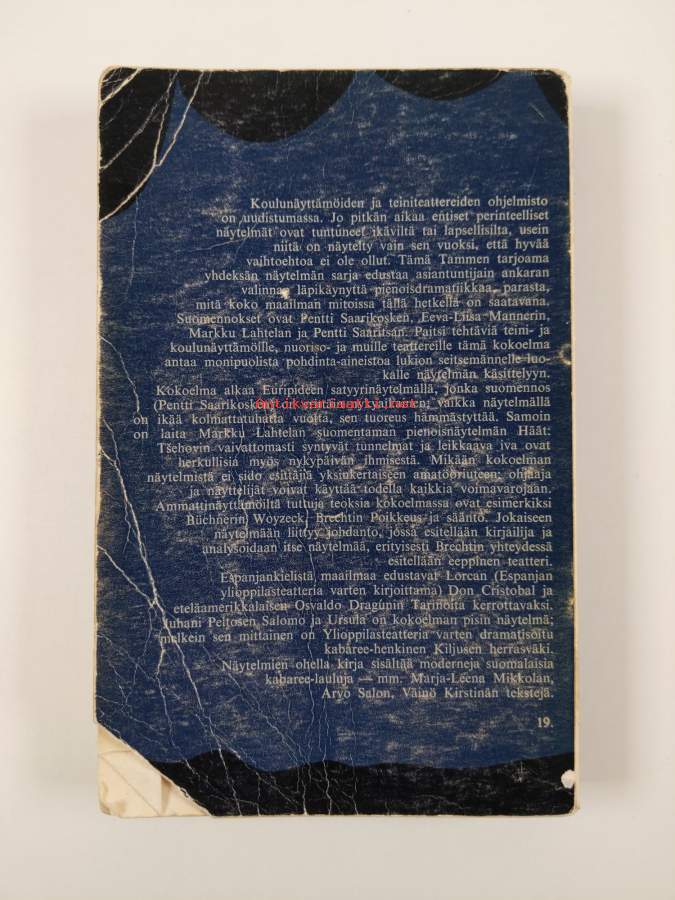 Koulunäyttämöiden ja teiniteattereiden ohjelmisto
on uudistumassa. Jo pitkän aikaa entiset perinteelliset
näytelmät ovat tuntuneet ikäviltä tai lapsellisilta, usein
niitä on näytelty vain sen vuoksi, että hyvää
vaihtoehtoa ei ole ollut. Tämä Tammen tarjoama
yhdeksän näytelmän sarja edustaa asiantuntijain ankaran
valinnan läpikäynyttä pienoisdramatiikkaa, parasta,
mitä koko maailman mitoissa tällä hetkellä on saatavana.
Suomennokset ovat Pentti Saarikosken, Eeva-Liisa Mannerin,
Markku Lahtelan ja Pentti Saaritsan. Paitsi tehtäviä teini- ja
koulunäyttämöille, nuoriso- ja muille teattereille tämä kokoelma
antaa monipuolista pohdinta-aineistoa lukion seitsemännelle luo-
kalle näytelmän käsittelyyn.
Kokoelma alkaa Euripideen satyyrinäytelmällä, jonka suomennos
(Pentti Saarikosken) on vaikka näytelmällä
on ikää kolmattatuhatta vuotta, sen tuoreus hämmästyttää. Samoin
on laita Markku Lahtelan suomentaman pienoisnäytelmän Häät:
Tšehovin vaivattomasti syntyvät tunnelmat ja leikkaava iva ovat
herkullisia myös nykypäivän ihmisestä. Mikään kokoelman
näytelmistä ei sido esittäjiä yksiukertaiseen amatööriuteen; ohjaaja
ja näyttelijät voivat käyttää todella kaikkia voimavarojaan.
Ammattinäyttämöiltä tuttuja teoksia kokoelmassa ovat esimerkiksi
Büchnerin Woyzeck, Brechtin Poikkeus ja sääntö. Jokaiseen
näytelmään liittyy johdanto, jossa esitellään kirjailija ja
analysoidaan itse näytelmää, erityisesti Brechtin yhteydessä
esitellään eeppinen teatteri.
Espanjankielistä maailmaa edustavat Lorcan (Espanjan
ylioppilasteatteria varten kirjoittama) Don Cristobal ja
eteläamerikkalaisen Osvaldo Dragúnin Tarinoita kerrottavaksi.
Juhani Peltosen Salomo ja Ursula on kokoelman pisin näytelmä;
melkein sen mittainen on Ylioppilasteatteria varten dramatisoitu
kabaree-henkinen Kiljusen herrasväki.
Näytelmien ohella kirja sisältää moderneja suomalaisia
kabaree-lauluja — mm. Marja-Leena Mikkolan,
Arvo Salon, Väinö Kirstinän tekstejä.
19.